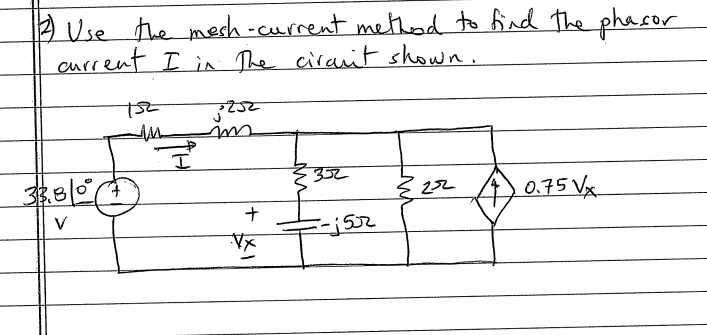 2) Use the mesh-current method to find the phasor
current I in The circuit shown.
1Ω j2Ω
I
33.8∠0° + 3Ω 2Ω 0.75 Vx
V + -j5Ω
Vx
-